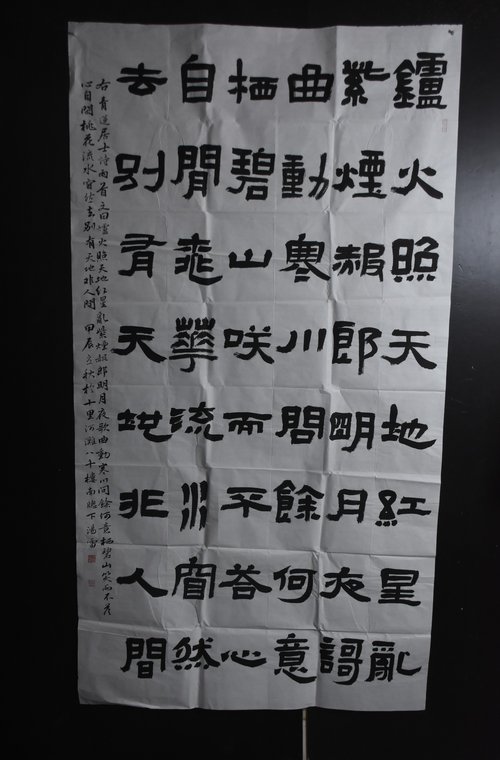 鑪火照天地紅星亂
紫煙赧郎明月夜謌
曲動寒川問餘何意
栖碧山咲而不荅心
自閒桃華流水窅然
去別有天地非人間
右青蓮居士詩兩首文曰爐火照天地紅星亂紫煙赧郎明月夜歌曲動寒川問餘何意栖碧山笑而不答
心自閒桃花流水窅然去別有天地非人間 甲辰之秋於十里河灘八十樓南牕下